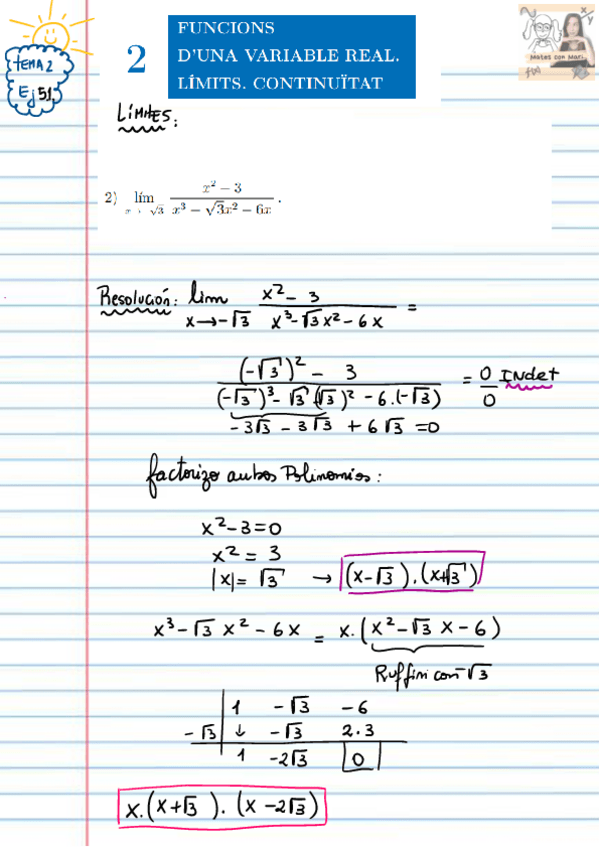 TEMA 2
Ej 51
2
FUNCIONS
D'UNA VARIABLE REAL.
LÍMITS. CONTINUÏTAT
Mates con Mari
f(x)
LíMITES:
2) lím x→-√3 (x² − 3)/(x³ − √3x² − 6x) .
Resolución: lim x→-√3 (x² - 3)/(x³-√3 x² - 6x) =
((-√3)² - 3)/((-√3)³ - √3 (√3)² - 6.(-√3)) = 0/0 Indet
-3√3 - 3√3 + 6√3 =0
factorizo ambos Polinomios:
x²-3=0
x² = 3
|x|= √3 → (x-√3).(x+√3)
x³-√3 x² - 6x = x.(x²-√3 x - 6)
Ruffini con -√3
1 -√3 -6
-√3 ↓ -√3 2.3
1 -2√3 0
x.(x+√3).(x-2√3)